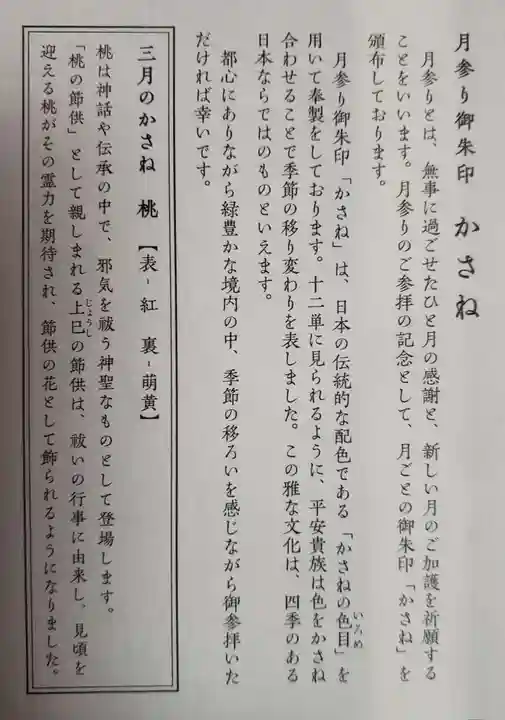 月参り御朱印 かさね
月参りとは、無事に過ごせたひと月の感謝と、新しい月のご加護を祈願する
ことをいいます。月参りのご参拝の記念として、月ごとの御朱印「かさね」を
頒布しております。
月参り御朱印「かさね」は、日本の伝統的な配色である「かさねの色目」を
いろめ
用いて奉製をしております。十二単に見られるように、平安貴族は色をかさね
合わせることで季節の移り変わりを表しました。この雅な文化は、四季のある
日本ならではのものといえます。
都心にありながら緑豊かな境内の中、季節の移ろいを感じながら御参拝いた
だければ幸いです。
三月のかさね 桃 【表-紅 裏-萌黄】
桃は神話や伝承の中で、邪気を祓う神聖なものとして登場します。
「桃の節供」として親しまれる上巳の節供は、祓いの行事に由来し、見頃を
じょうし
迎える桃がその霊力を期待され、節供の花として飾られるようになりました。